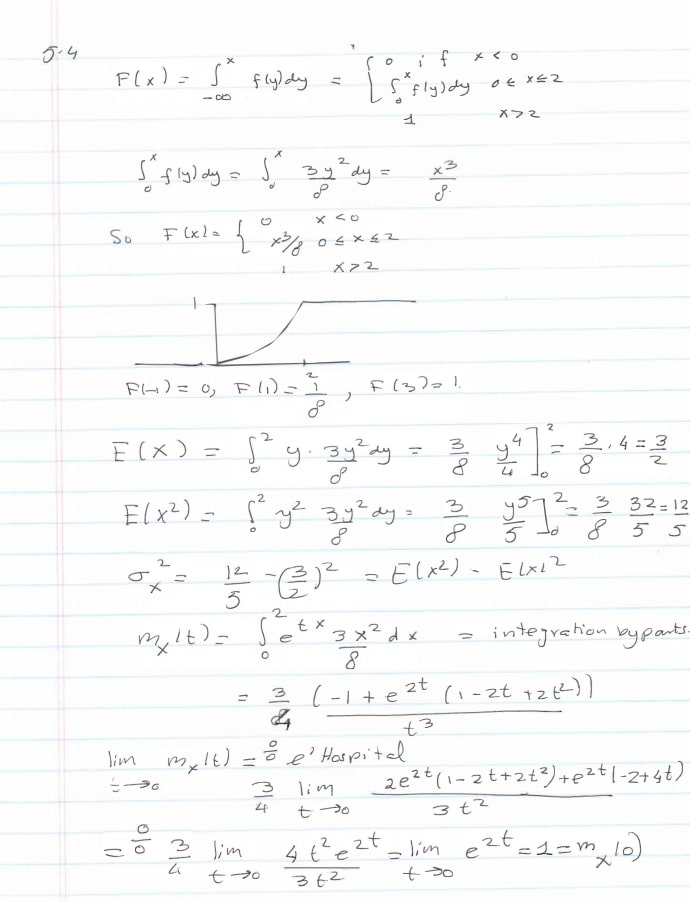 5.4
F(x) = ∫_{-∞}^{x} f(y)dy = { 0 if x < 0
∫_0^x f(y)dy 0 ≤ x ≤ 2
1 x > 2
∫_0^x f(y)dy = ∫_0^x 3y²/8 dy = x³/8.
So F(x) = { 0 x < 0
x³/8 0 ≤ x ≤ 2
1 x > 2
1
2
F(-1) = 0, F(1) = 1/8, F(3) = 1.
E(X) = ∫_0^2 y · 3y²/8 dy = 3/8 y⁴/4 ]_0^2 = 3/8 · 4 = 3/2
E(X²) = ∫_0^2 y² 3y²/8 dy = 3/8 y⁵/5 ]_0^2 = 3/8 32/5 = 12/5
σ_x² = 12/5 - (3/2)² = E(X²) - E(X)²
m_X(t) = ∫_0^2 e^{tx} 3x²/8 dx = integration by parts.
= 3/4 (-1 + e^{2t} (1 - 2t + 2t²))/t³
lim_{t→0} m_X(t) = 0/0 e'Hospital
3/4 lim_{t→0} 2e^{2t}(1 - 2t + 2t²) + e^{2t}(-2 + 4t) / 3t²
= 0/0 3/4 lim_{t→0} 4t²e^{2t}/3t² = lim_{t→0} e^{2t} = 1 = m_X(0)